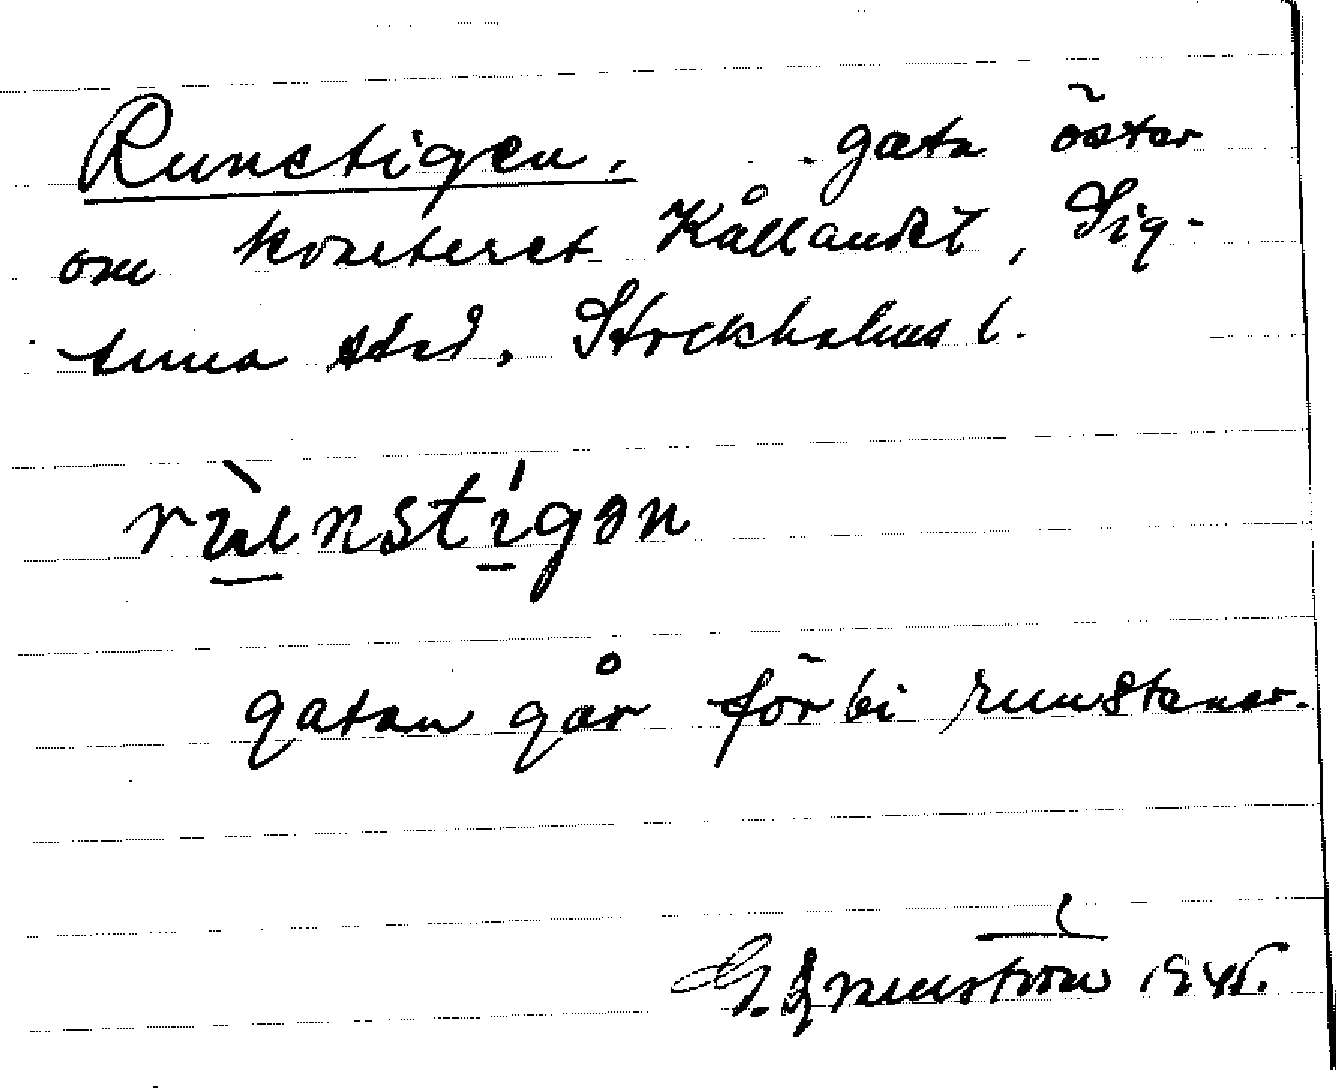 Runstigen. gata öster
om kvarteret Kållandet, Sig-
tuna stad, Stockholms l.
rùnstígən
gatan går förbi runstenar.